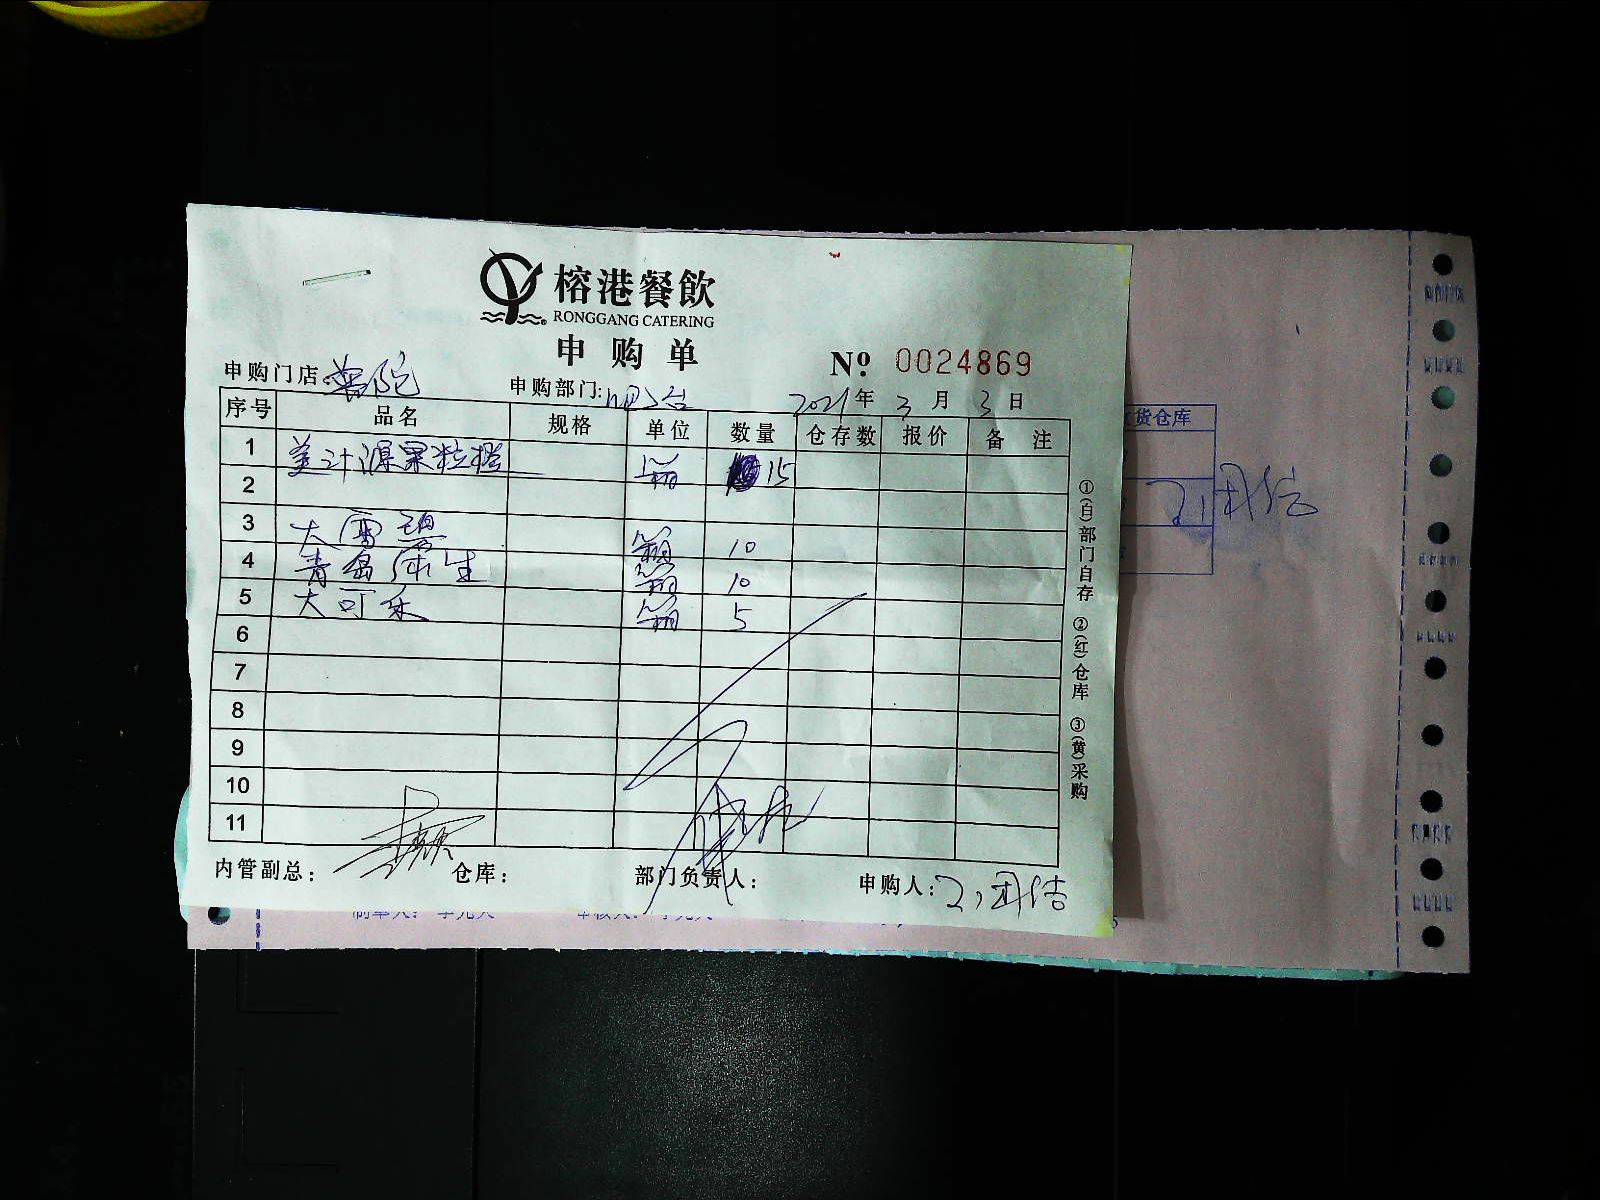 榕港餐飲
RONGGANG CATERING
申购单
№ 0024869
申购门店: 普陀
申购部门: 吧台
2021年3月3日
序号 品名 规格 单位 数量 仓存数 报价 备注
1 美汁源果粒橙 箱 15
2
3 大雪碧 箱 10
4 青岛纯生 箱 10
5 大可乐 箱 5
6
7
8
9
10
11
内管副总: 仓库: 部门负责人: 申购人:
①(白)部门自存 ②(红)仓库 ③(黄)采购
货仓库
制单人: